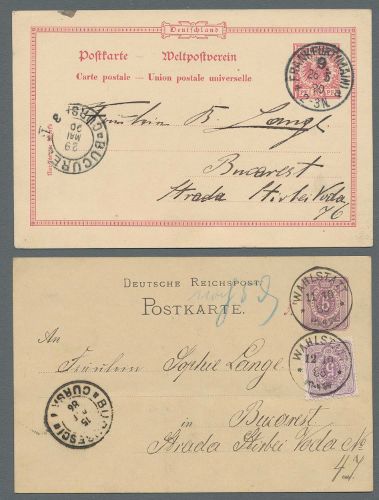 Deutschland
Postkarte — Weltpostverein
Carte postale — Union postale universelle
FRANKFURT (MAIN)
9
26 5
90
2-3N
Fräulein B. Lange
BUCURE
CURSA
3
29
MAI
90
Bucarest
Strada Stirbei Voda
76
DEUTSCHE REICHSPOST
POSTKARTE.
WAHLSTATT
11 10
WAHLSTATT
12
An
Fräulein Sophie Lange
BUCURESCI
CURSA
15
86
in Bucarest
Strada Stirbei Voda No
47.